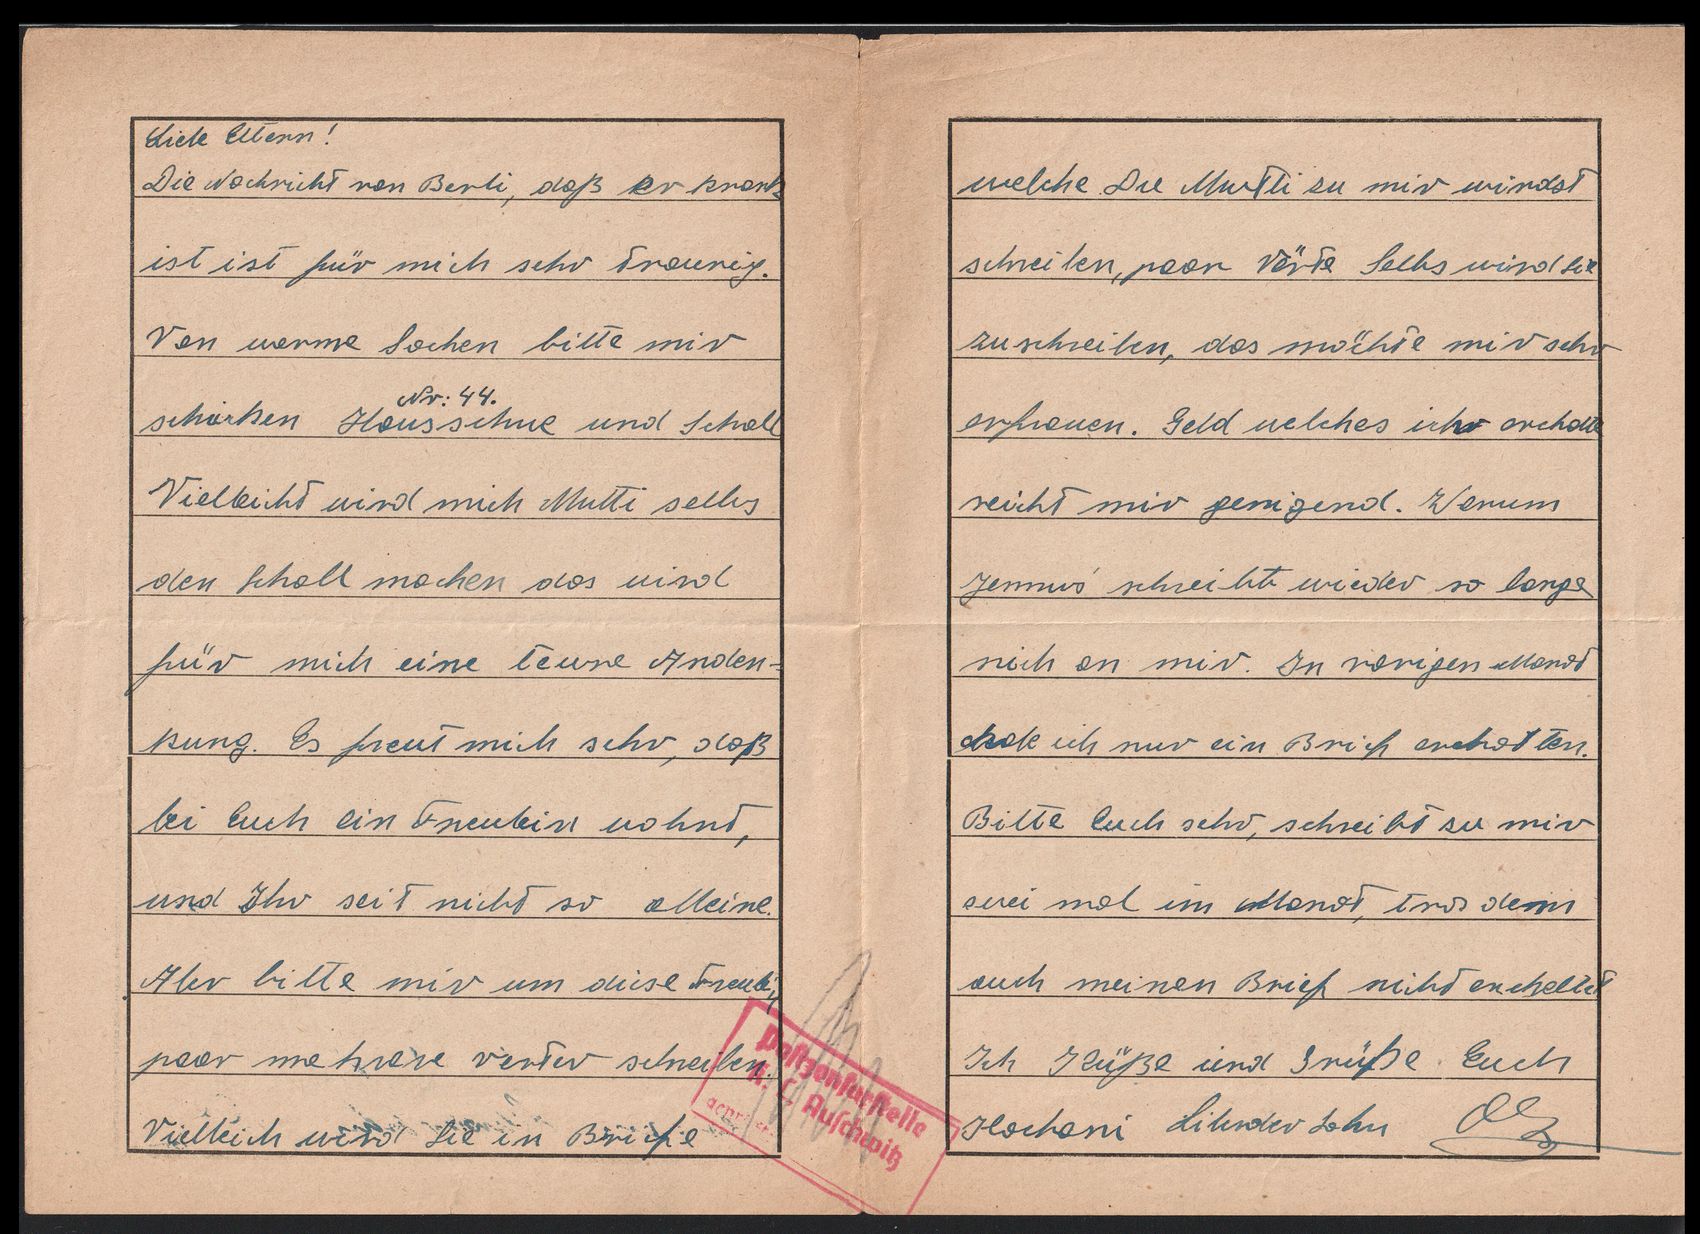 Liebe Eltern!
Die Nachricht von Berti, daß er krank
ist ist für mich sehr traurig.
Von warme Sachen bitte mir
Nr: 44.
schicken Hausschue und Schall
Vielleicht wird mich Mutti selbs
den Schall machen das wird
für mich eine teure Anden-
kung. Es freut mich sehr, daß
bei Euch ein Freulein wohnt,
und Ihr seit nicht so alleine.
Aber bitte mir um diese Freulein
paar mehrere verter schreiben.
Vielleich wird Sie in Briefe
welche Du Mutti zu mir wirdst
schreiben, paar Vörte Selbs wird Sie
zuschreiben, das möchte mir sehr
erfreuen. Geld welches ich erchalte
reicht mir genigend. Warum
schreibt wieder so lange
nich an mir. In vorigen Monat
habe ich nur ein Brief erchalten.
Bitte Euch sehr, schreibt zu mir
zwei mal im Monat, tros dem
auch meinen Brief nicht erchelltet
Ich Küße und Grüße Euch
Kochani Sohn
Postzensurstelle
K. L. Auschwitz